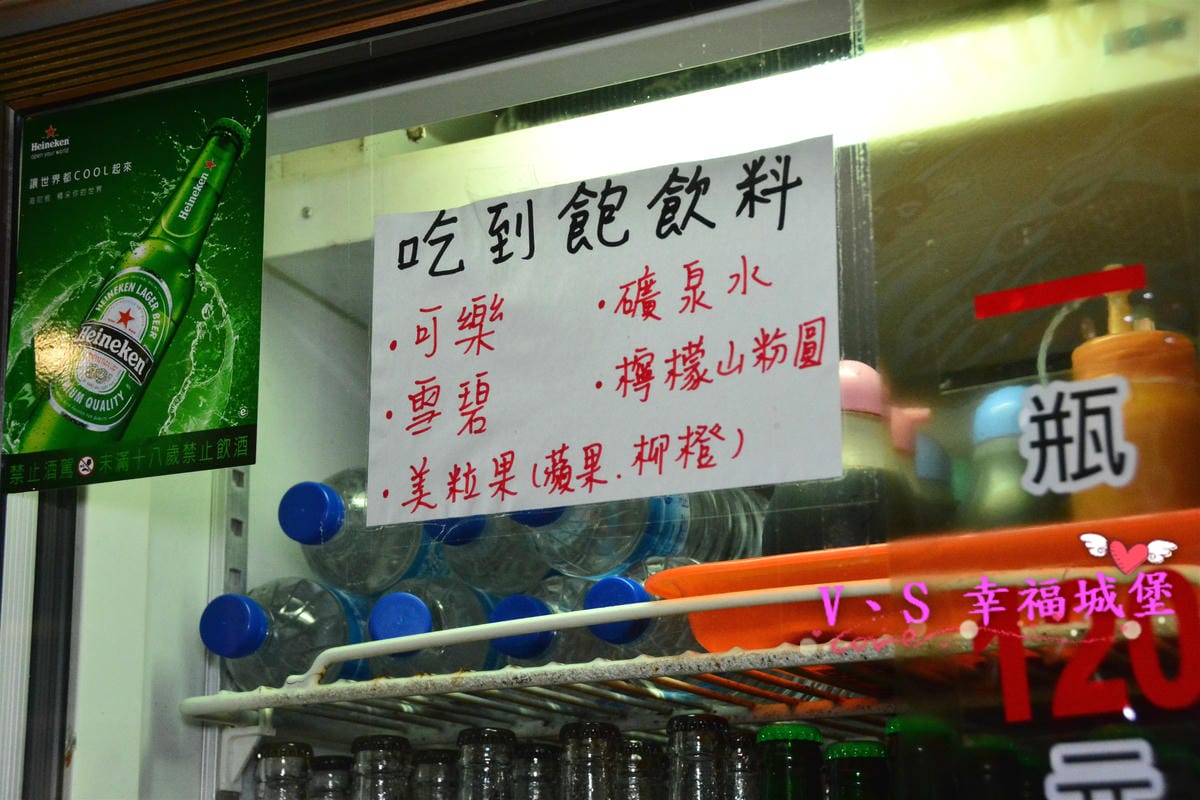 Heineken
open your world
讓世界都COOL起來
海尼根 精采你的世界
Heineken
HEINEKEN LAGER BEER
Heineken
PREMIUM QUALITY
禁止酒駕 未滿十八歲禁止飲酒
吃到飽飲料
·可樂
·雪碧
·美粒果(蘋果.柳橙)
·礦泉水
·檸檬山粉圓
一
瓶
120
元
V、S 幸福城堡